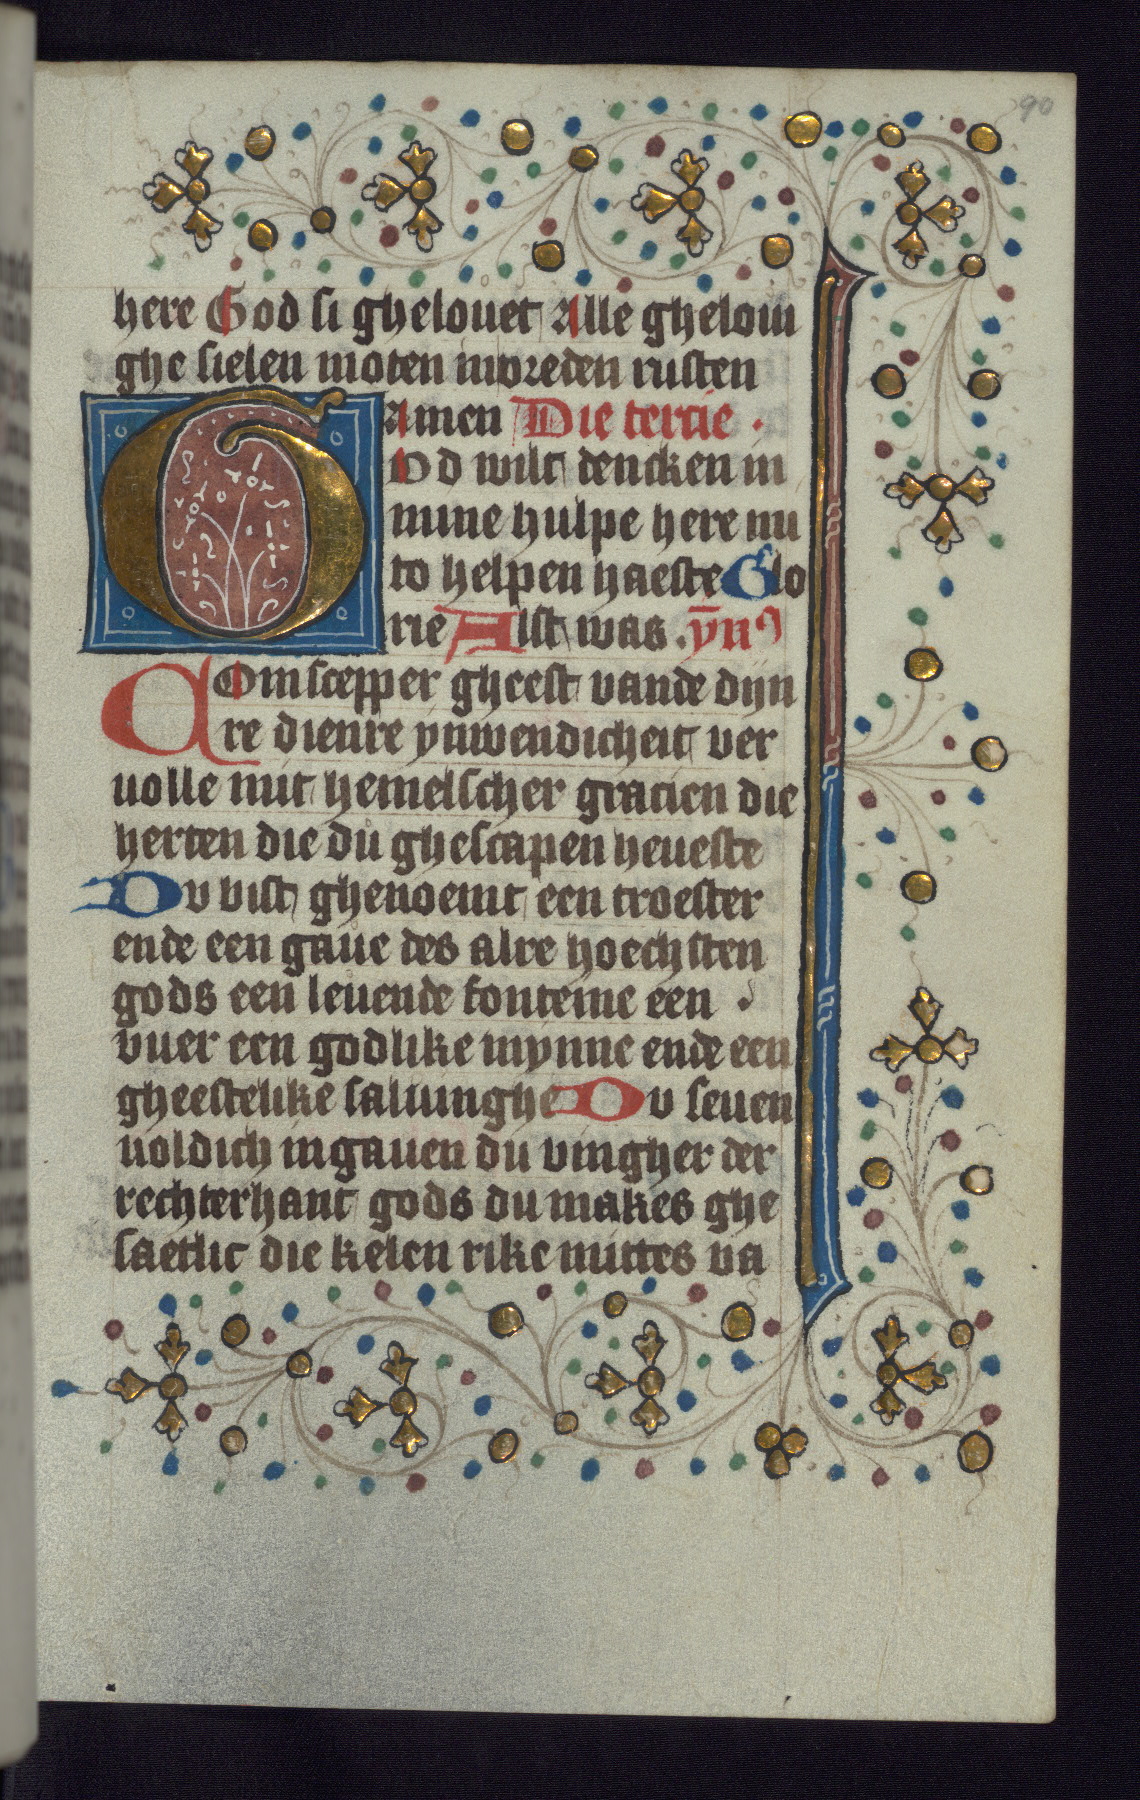 90
here God si ghelouet Alle gheloui
ghe sielen moten in vreden rusten
Amen Die tercie .
GOd wilt dencken in
mine hulpe here mi
to helpen haeste Glo
rie Alst was . ỹnꝰ
COm scepper gheest vande dijn
re dienre ynwendicheit ver
uolle mit hemelscher gracien die
herten die du ghescapen heueste
Dv bist ghenoemt een troester
ende een gaue des alre hoechsten
gods een leuende fonteine een
vuer een godlike mynne ende een
gheestelike saluinghe Dv seuen
uoldich in gauen du vingher der
rechterhant gods du makes ghe
saetlic die kelen rike mittes va